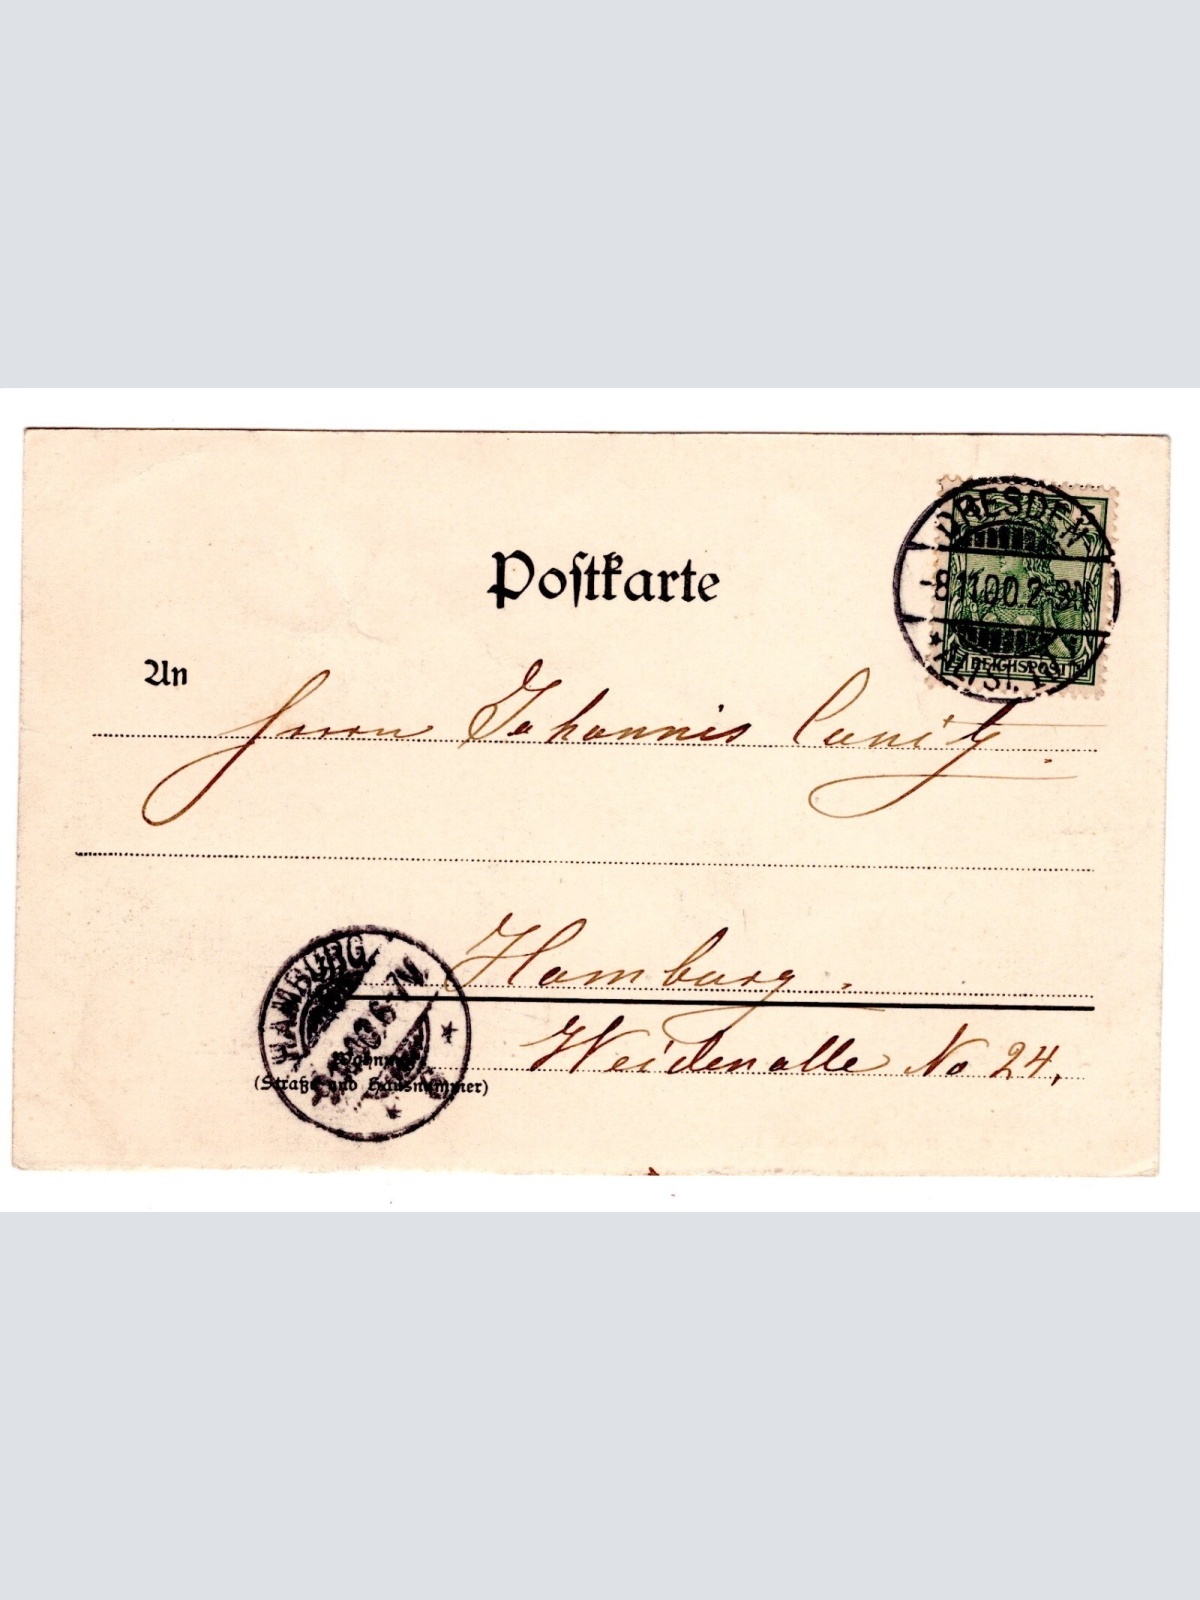 DRESDEN
-8.11.00.2-3N
* ALTST. 10
REICHSPOST
Postkarte
An
Herrn Johannis Canitz.
Hamburg.
HAMBURG
6-7N
Wohnung
(Straße und Hausnummer)
Weidenalle No 24.